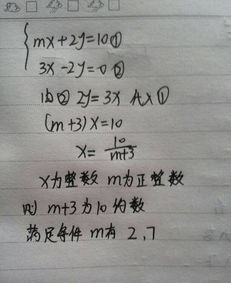 mx+2y=10①
3x-2y=0②
由② 2y=3x 代入①
(m+3)x=10
x=10/m+3
x为整数 m为正整数
则 m+3为10约数
满足条件 m有 2,7